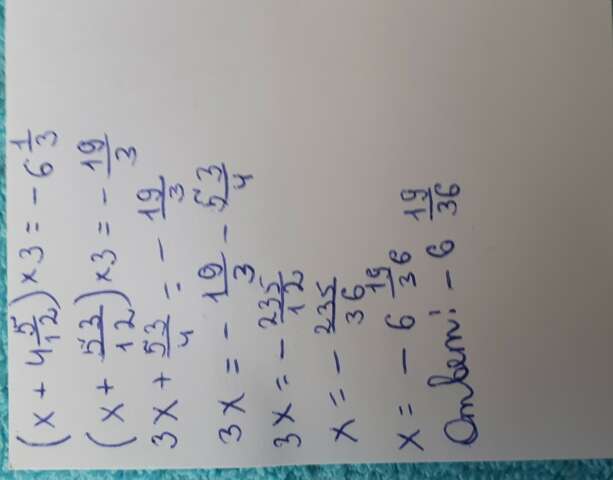 (x + 4 5/12) × 3 = - 6 1/3
(x + 53/12) × 3 = - 19/3
3x + 53/4 = - 19/3
3x = - 19/3 - 53/4
3x = - 235/12
x = - 235/36
x = - 6 19/36
Ответ: - 6 19/36